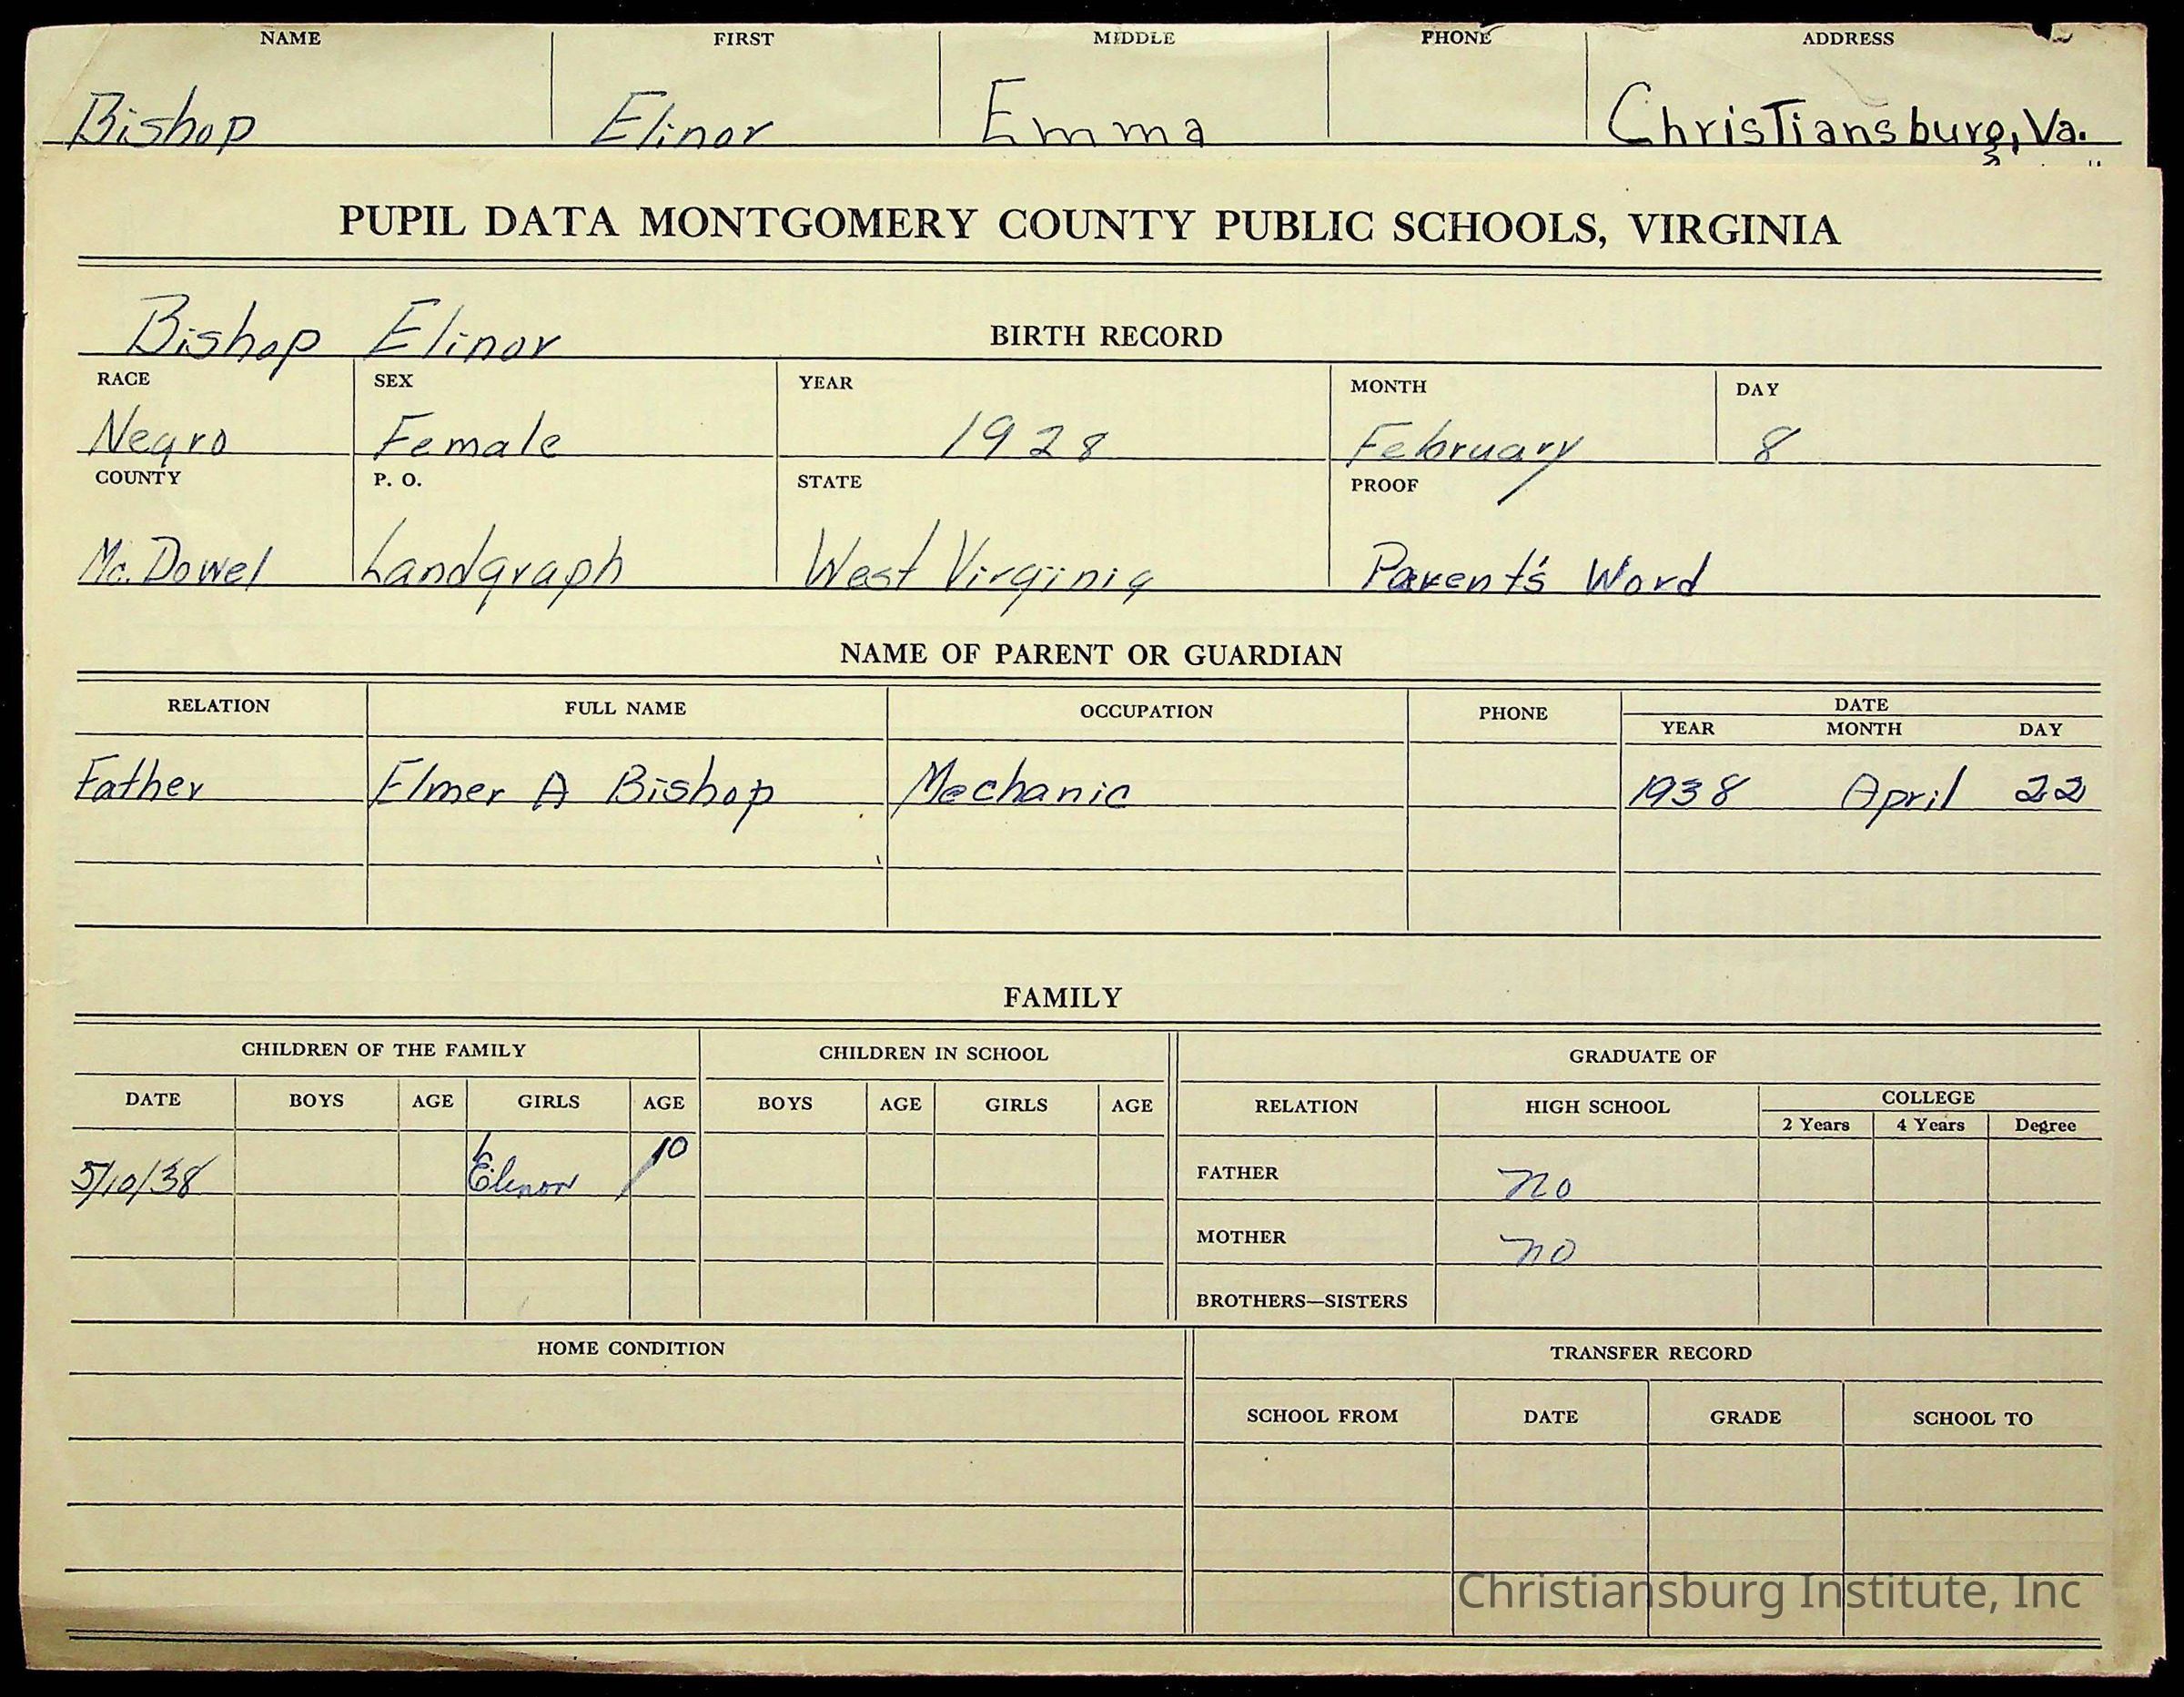 NAME FIRST MIDDLE PHONE ADDRESS
Bishop Elinor Emma Christiansburg, Va.
PUPIL DATA MONTGOMERY COUNTY PUBLIC SCHOOLS, VIRGINIA
Bishop Elinor BIRTH RECORD
RACE SEX YEAR MONTH DAY
Negro Female 1928 February 8
COUNTY P. O. STATE PROOF
Mc. Dowel Landgraph West Virginia Parent's Word
NAME OF PARENT OR GUARDIAN
RELATION FULL NAME OCCUPATION PHONE DATE
YEAR MONTH DAY
Father Elmer A Bishop Mechanic 1938 April 22
FAMILY
CHILDREN OF THE FAMILY CHILDREN IN SCHOOL GRADUATE OF
DATE BOYS AGE GIRLS AGE BOYS AGE GIRLS AGE RELATION HIGH SCHOOL COLLEGE
2 Years 4 Years Degree
5/10/38 Elinor 10 FATHER no
MOTHER no
BROTHERS—SISTERS
HOME CONDITION TRANSFER RECORD
SCHOOL FROM DATE GRADE SCHOOL TO
Christiansburg Institute, Inc